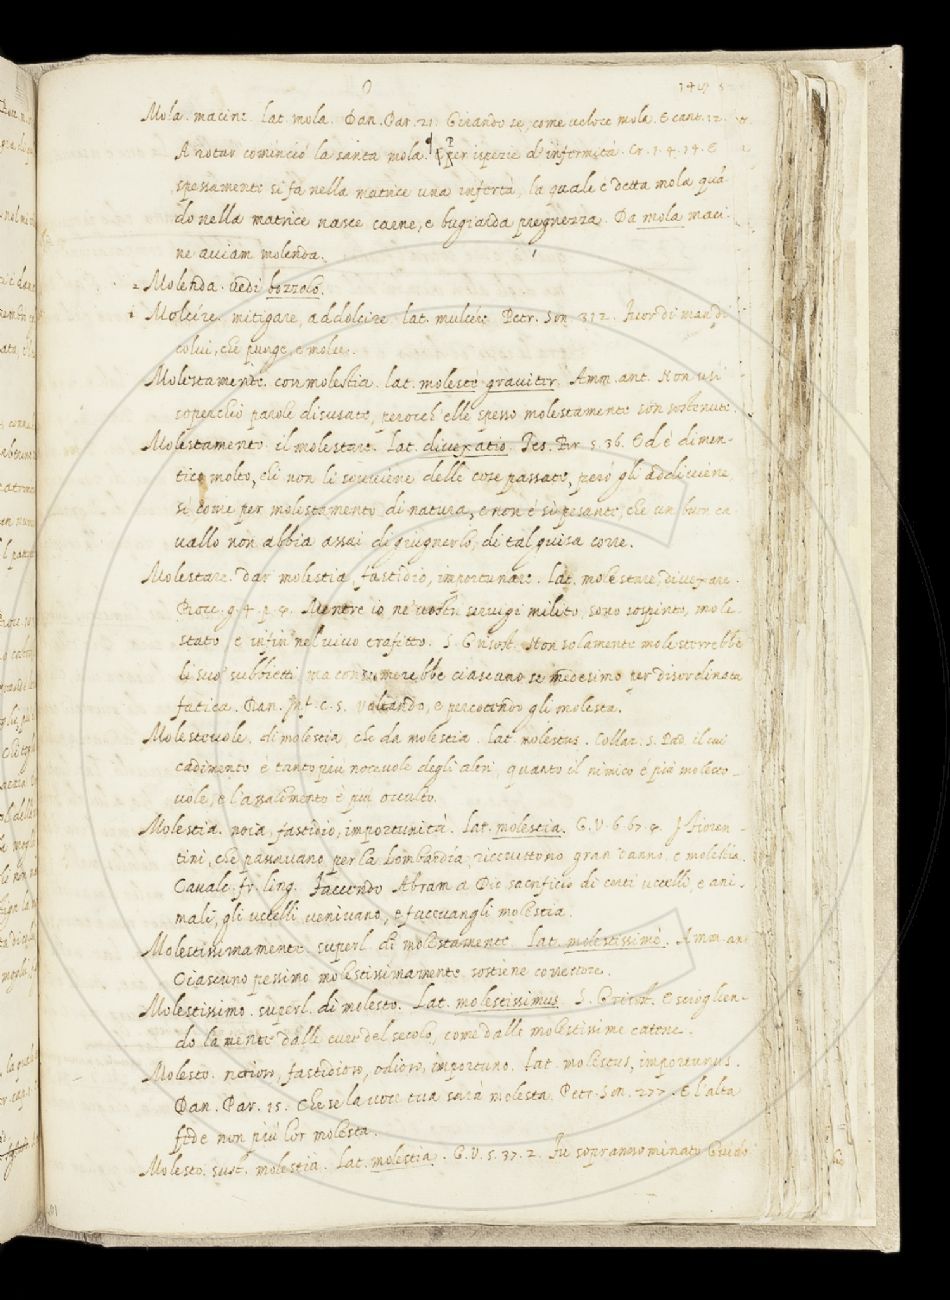 O
Mola. macine. lat. mola. Dan. Par. 21. Girando se, come veloce mola. E cant. 12.
A rotar cominciò la santa mola. E per ispezie d'infermità. Cr. 1. 4. 14. E
spessamente si fa nella matrice una infertà, la quale è detta mola, quã
do nella matrice nasce carne, e bugiarda pregnezza. Da mola maci-
ne aviam molenda.
2 Molenda. vedi bozzolo.
1 Molcire. mitigare, addolcire. lat. mulcere. Petr. Son. 312. Fuor di man di
colui, che punge, e molce.
Molestamente. con molestia. lat. molestè graviter. Amm. ant. Non usi
soperchio parole disusate, perocch'elle spesso molestamente son sostenute.
Molestamento. il molestare. Lat. divexatio. Tes. Br. 5. 36. Ed è dimen-
tico molto, chè non li sovviene delle cose passate, però gli addiviene,
sì come per molestamento di natura, e non è sì pesante, che un buon ca
vallo non abbia assai di giugnerlo, di tal guisa corre.
Molestare. dar molestia, fastidio, importunare. Lat. molestare, divexare.
Bocc. g. 4. p. 4. Mentre io ne' vostri servigi milito, sono sospinto, mole
stato e infin nel vivo trafitto. S. Grisost. Non solamente molesterrebbe
li suoi subbietti, ma consumerebbe ciascuno se medesimo per disordinata
fatica. Dan. Inf. c. 5. Voltando, e percotendo gli molesta.
Molestevole. di molestia, che da molestia. Lat. molestus. Collaz. S. Pad. il cui
cadimento è tanto più nocevole degli altri, quanto il nimico è più molesto-
vole, e l'assalimento è più occulto.
Molestia. noia, fastidio, importunità. Lat. molestia. G. V. 6. 67. 4. I Fioren-
tini, che passavano per la Lombardia, ricevettono gran danno, e molestia.
Cavalc. fr. ling. Faccendo Abram a Dio sacrificio di certi uccelli, e ani-
mali, gli uccelli venivano, e facevangli molestia.
Molestissimamente. superl. di molestamente. Lat. molestissimè. Amm. an.
Ciascuno pessimo molestissimamente sostiene correttore.
Molestissimo. superl. di molesto. Lat. molestissimus. S. Grisost. E scioglien-
do la mente dalle cure del secolo, come dalle molestissime catene.
Molesto. noioso, fastidioso, odioso, importuno. Lat. molestus, importunus.
Dan. Par. 15. Che se la voce tua sarà molesta. Petr. Son. 277. E l'alta
fede non più lor molesta.
Molesto. sust. molestia. Lat. molestia. G. V. 5. 37. 2. Fu soprannominato Guido